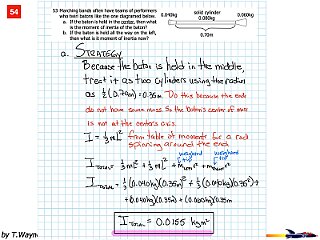 54
53 Marching bands often have teams of performers
who twirl batons like the one diagramed below.
a. If the baton is held in the center, then what
is the moment of inertia of the baton?
b. If the baton is held all the way on the left,
then what is it moment of inertia now?
0.040kg
solid cylinder
0.080kg
0.060kg
0.70m
a. STRATEGY
Because the baton is held in the middle,
treat it as two cylinders using the radius
as ½(0.70m)=0.35m. Do this because the ends
do not have same mass. So the baton's center of mass
is not at the center's axis.
from table of moments for a rod
spinning around the end
weighted tip
weighted tip
by T.Wayne